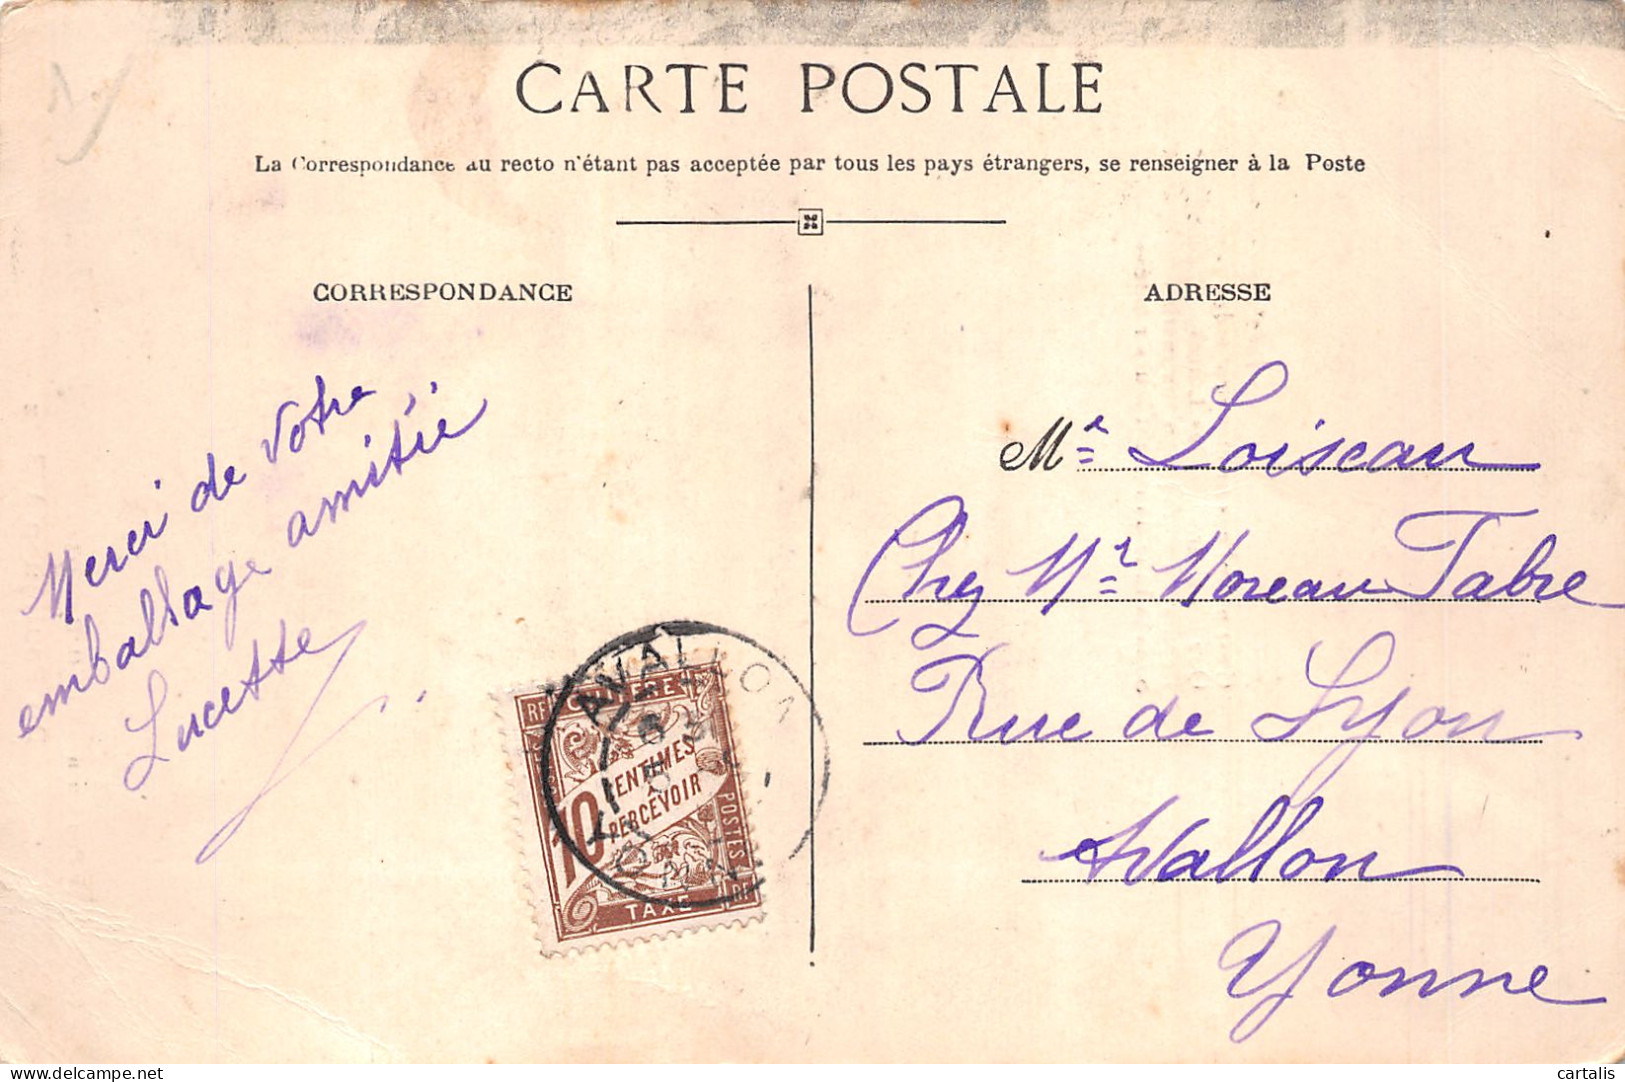 CARTE POSTALE
La Correspondance au recto n'étant pas acceptée par tous les pays étrangers, se renseigner à la Poste
CORRESPONDANCE
Merci de votre
emballage amitié
Lucette
RF CHIFFRE
10 CENTIMES
A
PERCEVOIR
POSTES
TAXE RF
AVALLON
ADRESSE
Mr Loiseau
Chez Mr Moreau Fabre
Rue de Lyon
Avallon
Yonne
delcampe.net
cartalis